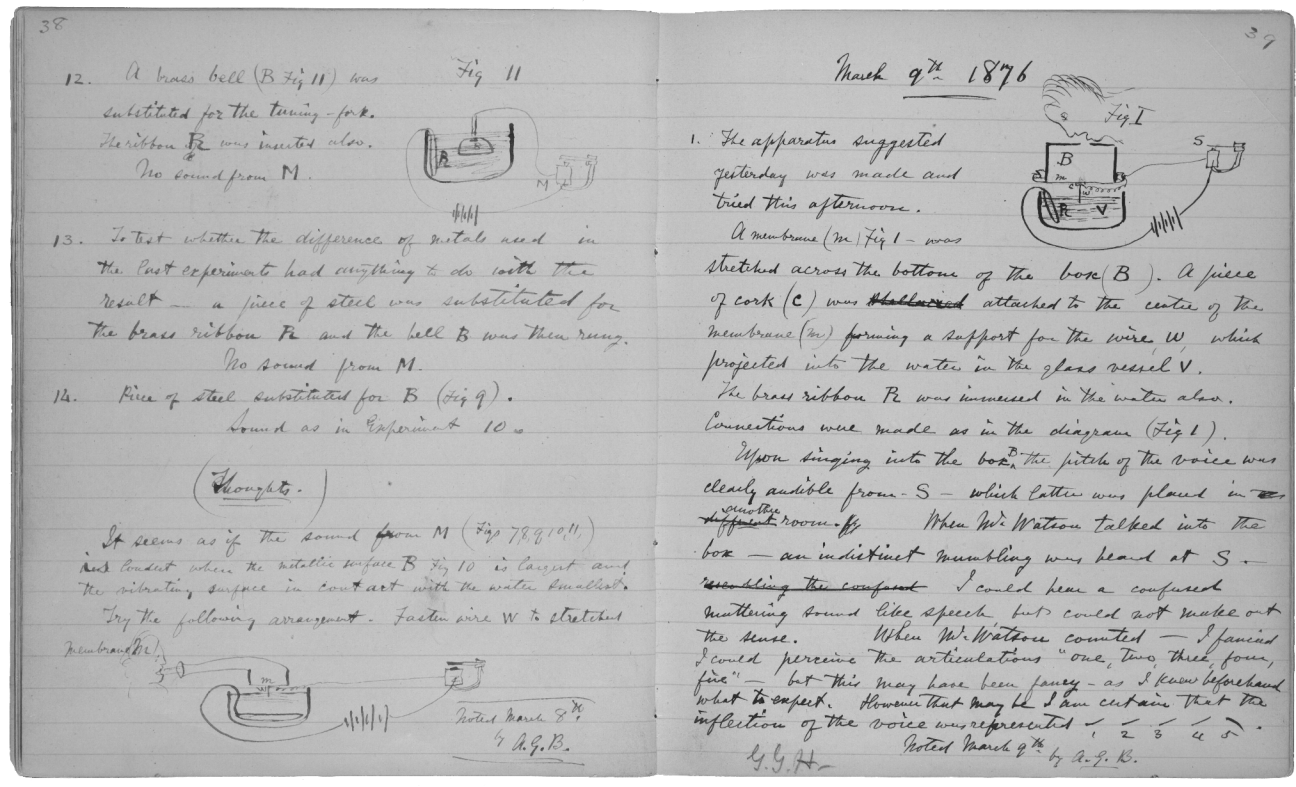 38
12. A brass bell (B Fig 11) was
Fig 11
substituted for the tuning-fork.
The ribbon R was inserted also.
No sound from M.
R
B
M
13. To test whether the difference of metals used in
the last experiments had anything to do with the
result — a piece of steel was substituted for
the brass ribbon R and the bell B was then rung.
No sound from M.
14. Piece of steel substituted for B (Fig 9).
Sound as in Experiment 10.
(Thoughts.)
It seems as if the sound from M (Figs 7 8, 9, 10, 11,)
is loudest when the metallic surface B Fig 10 is largest and
the vibrating surface in contact with the water smallest.
Try the following arrangement. Fasten wire W to stretched
membrane (m)
m
W
Noted March 8th
by A.G.B.
39
March 9th 1876
Fig I
1. The apparatus suggested
yesterday was made and
tried this afternoon.
B
m
c
w
R V
S
A membrane (m) Fig 1 — was
stretched across the bottom of the box (B). A piece
of cork (c) was shellaced attached to the centre of the
membrane (m) forming a support for the wire, W, which
projected into the water in the glass vessel V.
The brass ribbon R was immersed in the water also.
Connections were made as in the diagram (Fig 1).
Upon singing into the box B, the pitch of the voice was
clearly audible from — S — which latter was placed in
different another room. When Mr. Watson talked into the
box — an indistinct mumbling was heard at S. —
resembling the confused I could hear a confused
muttering sound like speech but could not make out
the sense. When Mr. Watson counted — I fancied
I could perceive the articulations "one, two, three, four,
five" — but this may have been fancy — as I knew beforehand
what to expect. However that may be I am certain that the
inflection of the voice was represented 1 2 3 4 5.
Noted March 9th by A.G.B.
G.G.H—